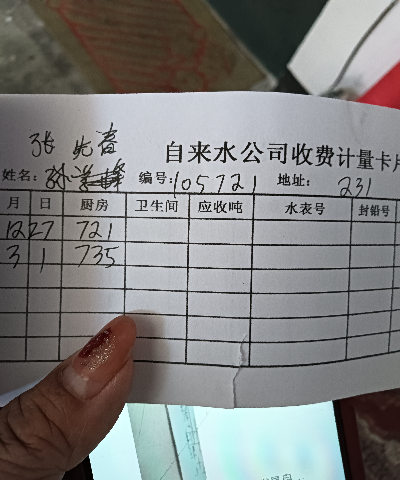 张先春
自来水公司收费计量卡片
姓名: 编号:105721 地址: 231
月 日 厨房 卫生间 应收吨 水表号 封铅号
12 27 721
3 1 735